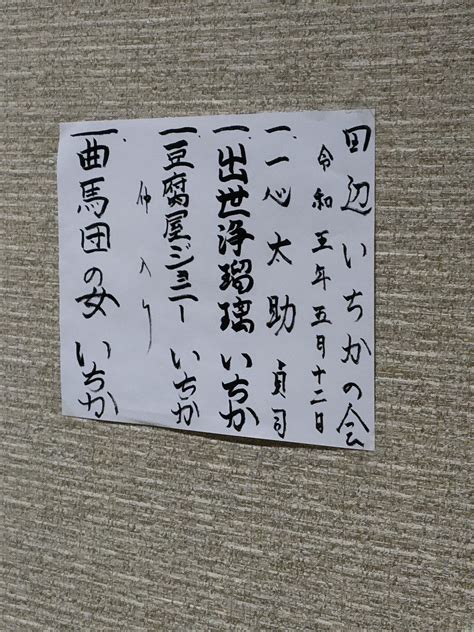 田辺いちかの会
令和五年五月十二日
一、一心太助 貞司
一、出世浄瑠璃 いちか
一、豆腐屋ジョニー いちか
仲入り
一、曲馬団の女 いちか